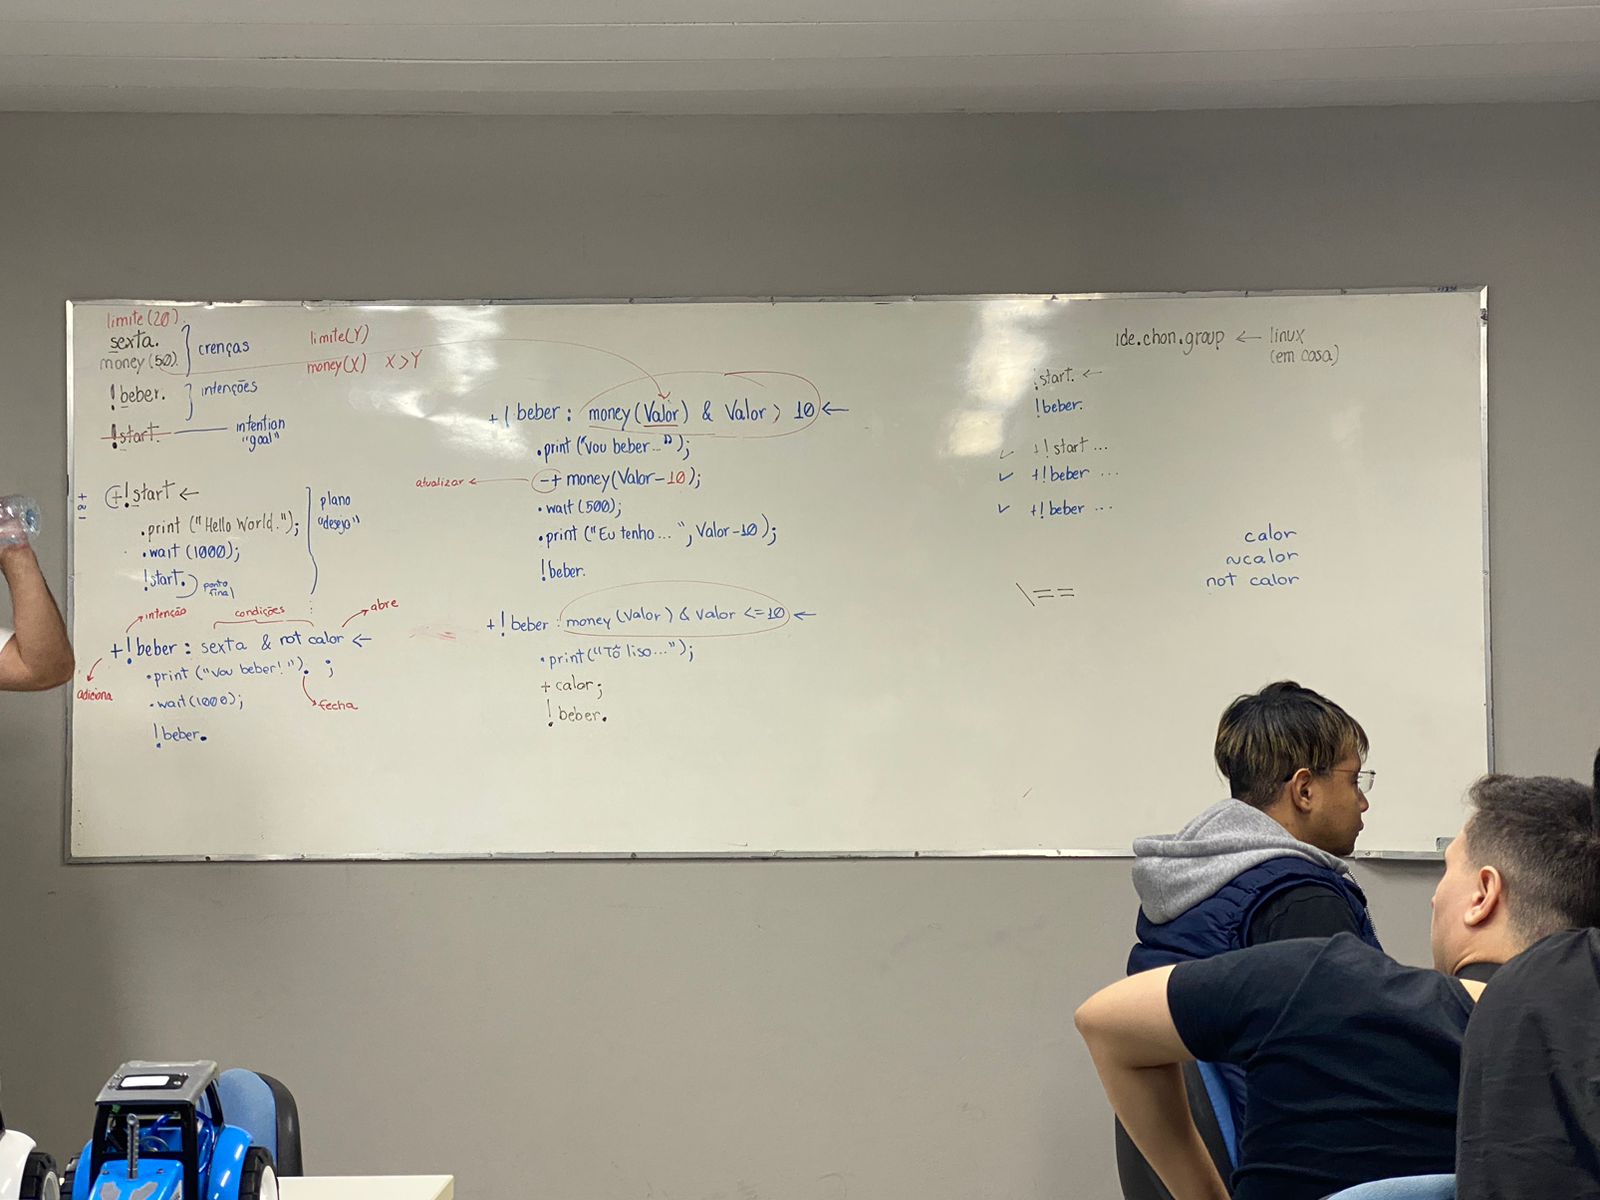 limite(20).
sexta.
money(50).
crenças
limite(Y)
money(X) X>Y
!beber.
intenções
!start.
intention
"goal"
+!start ←
.print ("Hello World.");
.wait (1000);
!start.
ponto
final
plano
"desejo"
intenção
condições
abre
+!beber : sexta & not calor ←
adiciona
.print ("Vou beber!"). ;
fecha
.wait(1000);
!beber.
+!beber : money(Valor) & Valor > 10 ←
.print ("Vou beber...");
atualizar ← -+money(Valor-10);
.wait (500);
.print ("Eu tenho...", Valor-10);
!beber.
+!beber : money(Valor) & Valor <=10 ←
.print("Tô liso...");
+calor;
!beber.
ide.chon.group ← linux
(em casa)
!start. ←
!beber.
✓ +!start ...
✓ +!beber ...
✓ +!beber ...
calor
~calor
not calor
\==